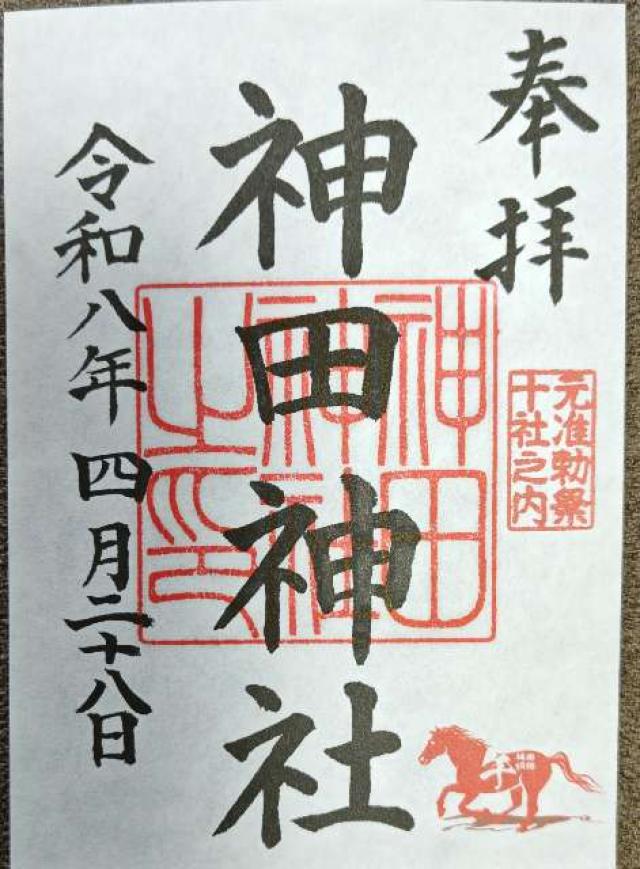 奉拝
元准勅祭
十社之内
神田神社
神田
神社
之印
令和八年四月二十八日
午